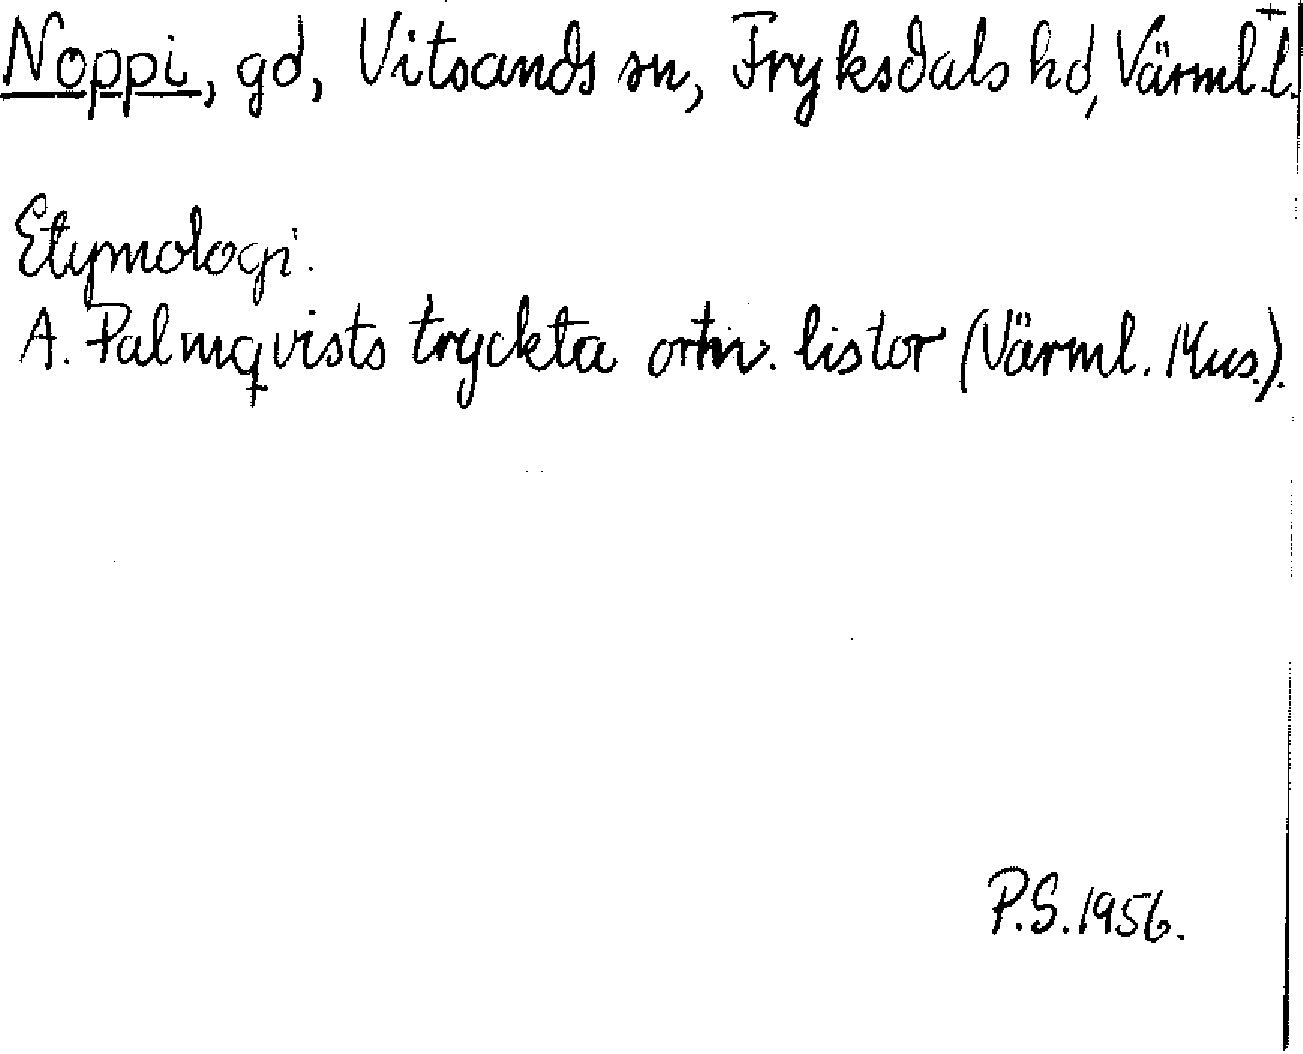 Noppi, gd, Vitsands sn, Fryksdals hd, Värml. l.
Etymologi.
A. Palmqvists tryckta ortn. listor (Värml. Mus.).
P.S. 1956.